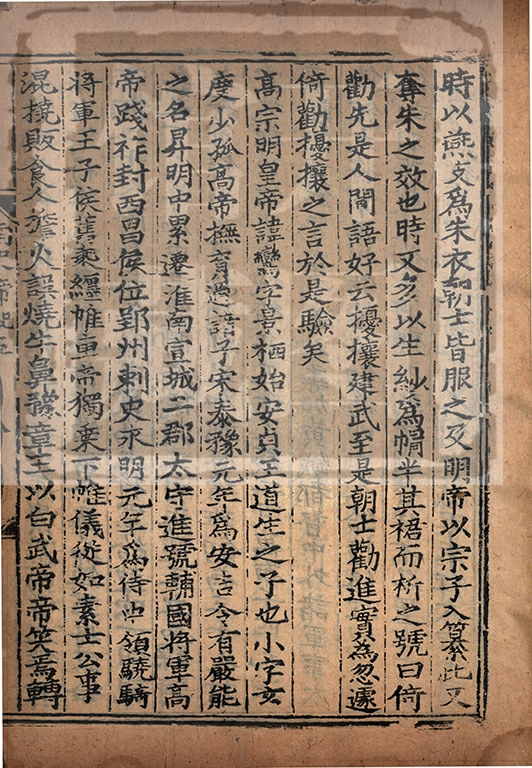 時以燕支爲朱衣朝士皆服之及明帝以宗子入纂此又
奪朱之效也時又多以生紗爲帽半其裙而析之號曰倚
勸先是人間語好云擾攘建武至是朝士勸進實爲忽遽
倚勸擾攘之言於是驗矣
高宗明皇帝諱鸞字景栖始安貞王道生之子也小字玄
度少孤高帝撫育過諸子宋泰豫元年爲安吉令有嚴能
之名昇明中累遷淮南宣城二郡太守進號輔國將軍高
帝踐祚封西昌侯位郢州刺史永明元年爲侍中領驍騎
將軍王子侯舊乘纏帷車帝獨乘下帷儀從如素士公事
混撓販食人擔火誤燒牛鼻豫章王以白武帝帝笑焉轉